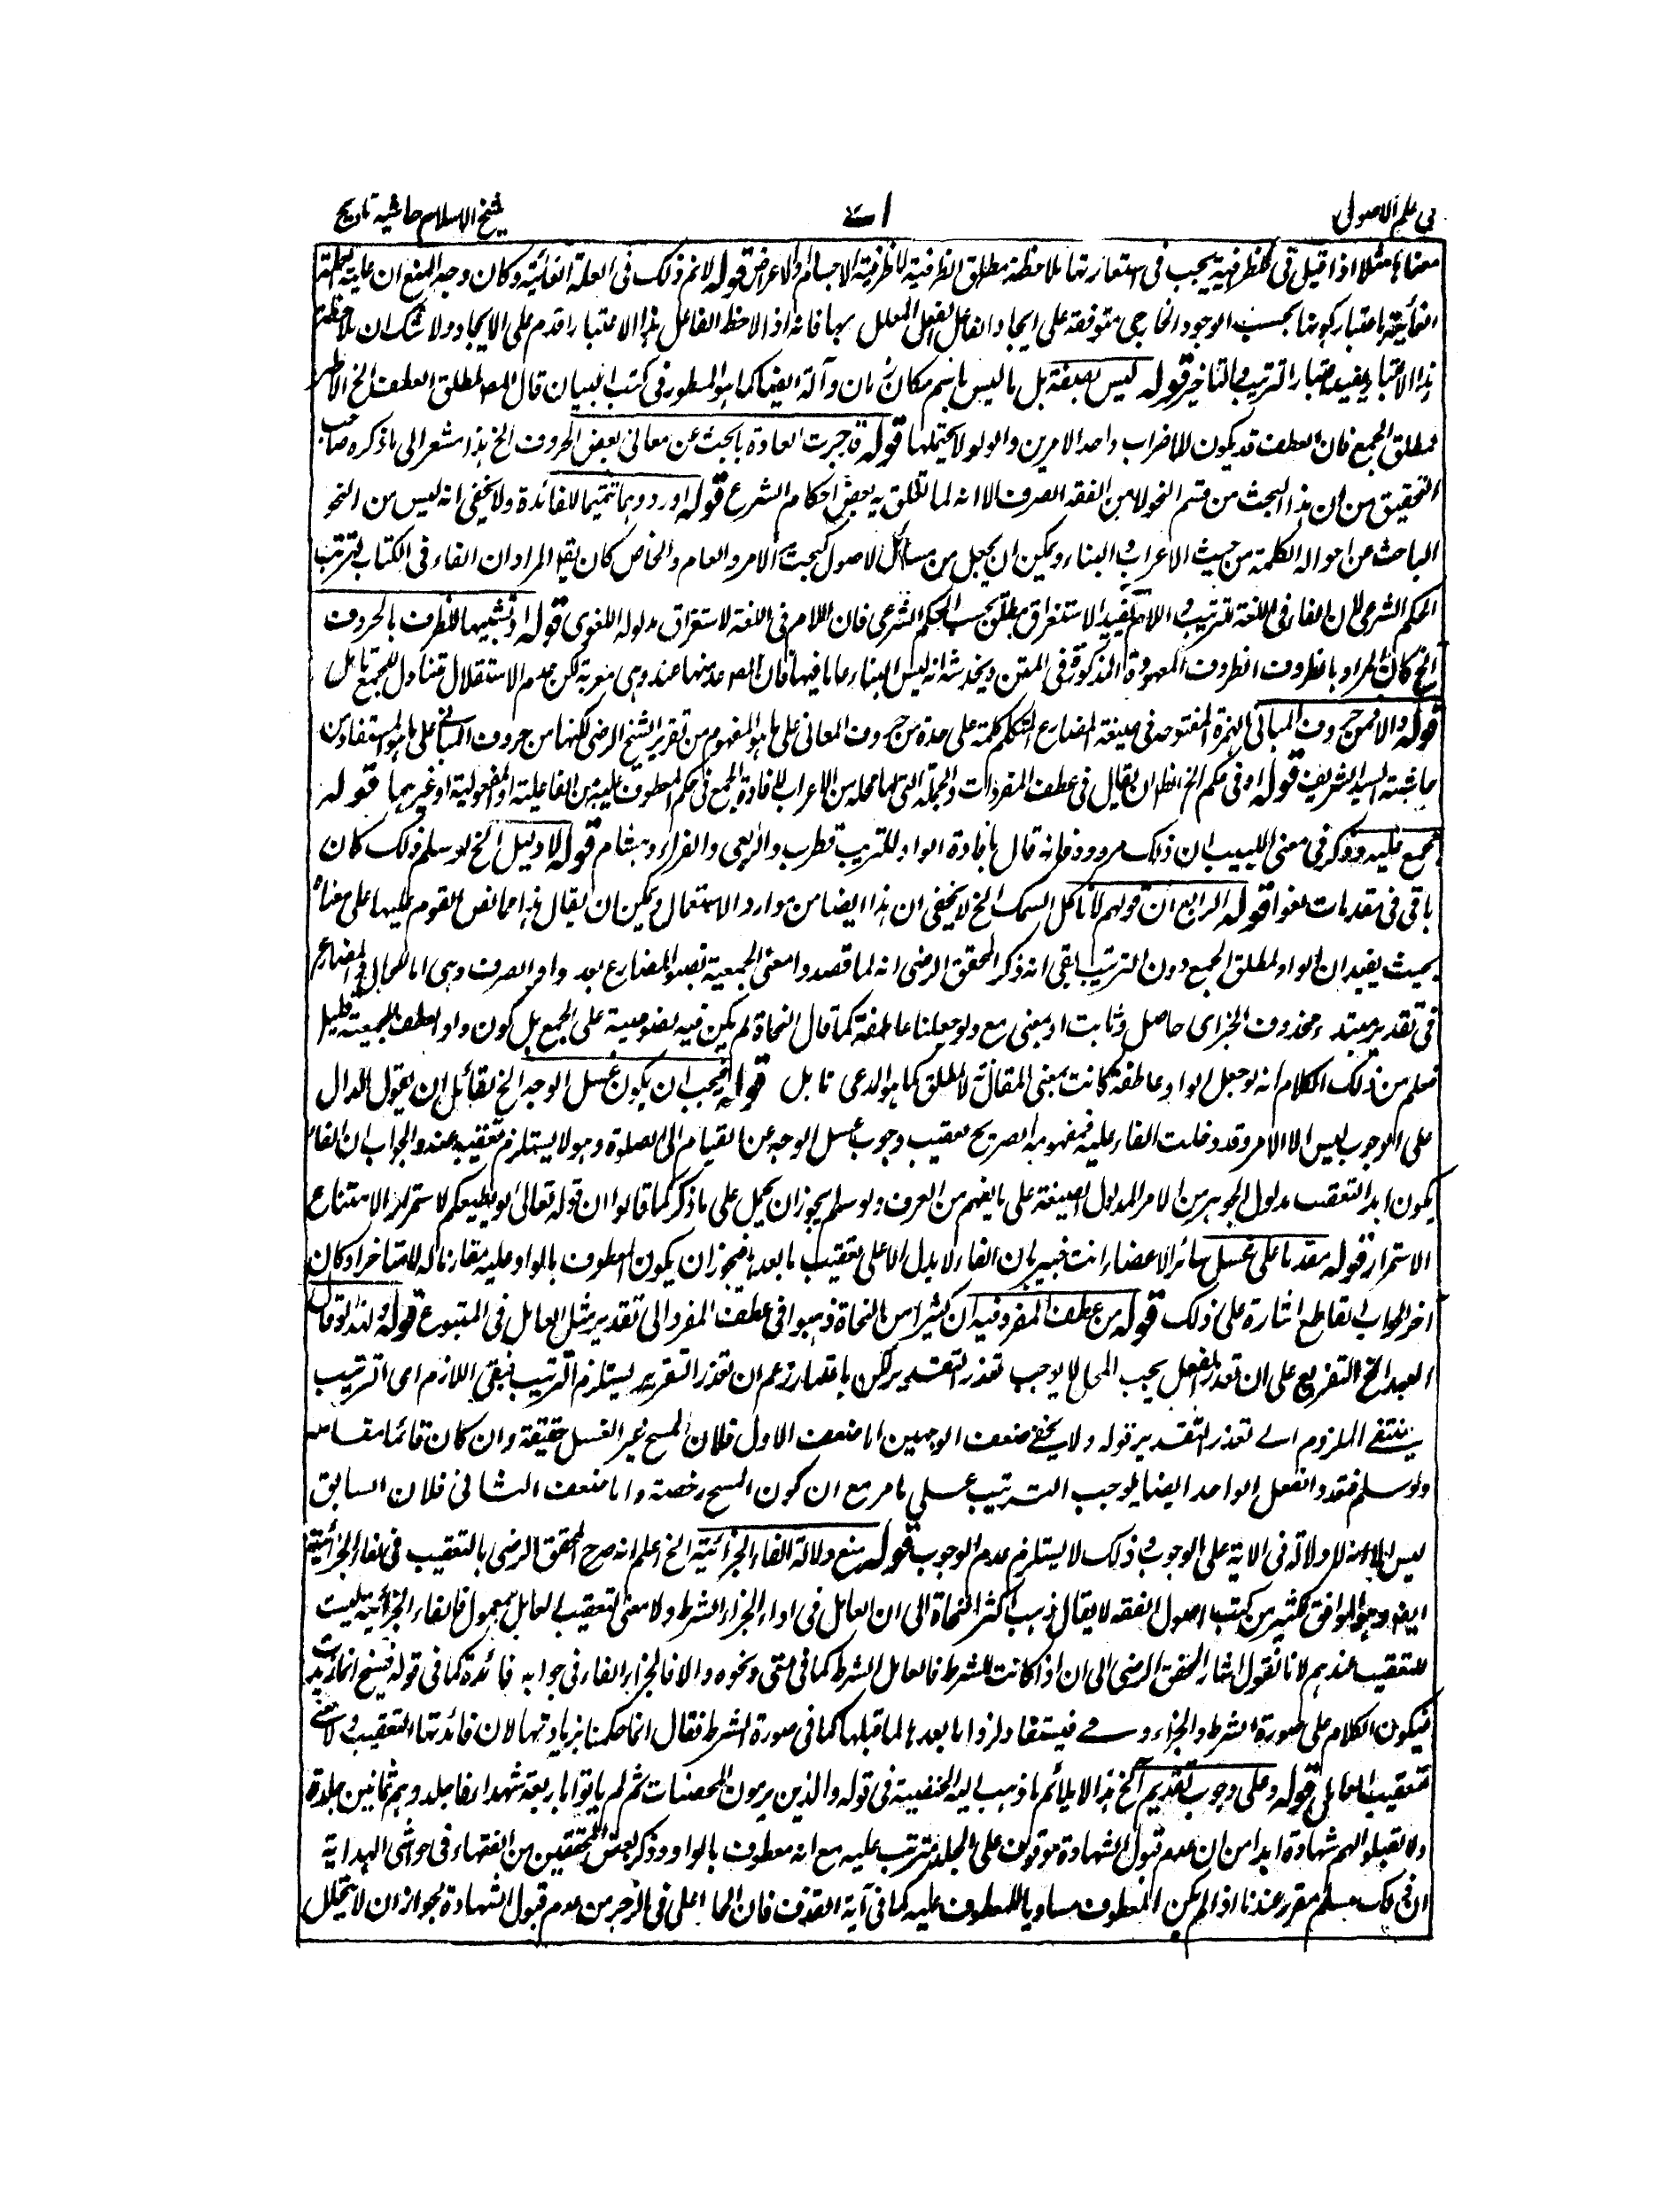 في علم الاصول
شيخ الاسلام حاشية تلويح
معناها مثلا اذا قيل في للظرفية يجب في استعارتها ملاحظة مطلق الظرفية لا ظرفية الاجسام والاعراض قوله لانم ذلك في العلة الغائية وكان وجه المنع ان علية العلة
الغائية باعتبار كونها بحسب الوجود الخارجي متوقفة على ايجاد الفاعل الفعل المعلل بها فانه اذا لاحظ الفاعل بهذا الاعتبار اقدم على الايجاد ولا شك ان ملاحظة
هذا الاعتبار يفيد اعتبار الترتيب والتاخير قوله ليس بصفة بل ما ليس باسم مكان وزمان وآلة ايضا كما هو المسطور في كتب البيان قال المص لمطلق العطف الخ الاظهر
لمطلق الجمع فان العطف قد يكون للاضراب واحد الامرين والواو لا يحتملها قوله قد جرت العادة بالبحث عن معاني بعض الحروف الخ هذا مشعر الى ما ذكره صاحب
التحقيق من ان هذا البحث من قسم النحو لا من الفقه الصرف الا انه لما تعلق به بعض احكام الشرع قوله اوردوهما تتميما للفائدة ولا يخفى انه ليس من النحو
الباحث عن احوال الكلمة من حيث الاعراب والبناء ويمكن ان يجعل من مسائل الاصول كبحث الامر والعام والخاص كان يق المراد ان الفاء في الكتاب لترتب
الحكم الشرعي لان الفاء في اللغة للترتيب واللام يفيد الاستغراق مطلق بحسب الحكم الشرعي فان اللام في اللغة لاستغراق مدلوله اللغوي قوله او تشبيها للظرف بالحروف
الخ كان المراد بالظروف الظروف المعهودة المذكورة في المتن ويخدشه انه ليس البناء عاما فيها فان المص عد منها عند وهي معربة لكن عدم الاستقلال متناول للجميع تامل
قوله والا فمن حروف المباني الهمزة المفتوحة في صيغة المضارع المتكلم كلمة على حدة من حروف المعاني على ما هو المفهوم من تقرير الشيخ الرضي لكنها من حروف المباني على ما هو المستفاد من
حاشية السيد الشريف قوله او في حكم الخ الظ ان يقال في عطف المفردات والجملة التي لها محل من الاعراب لافادة الجمع في حكم المعطوف عليه من الفاعلية او المفعولية او غيرهما قوله
مجمع عليه وذكر في مغني اللبيب ان ذلك مردود فانه قال بافادة الواو للترتيب قطرب والربعي والفراء وهشام قوله لا دليل الخ لو سلم ذلك كان
باقي في مقدمات لغوا قوله الرابع ان قولهم لا تاكل السمك الخ لا يخفى ان هذا ايضا من موارد الاستعمال ويمكن ان يقال هذا مما نص القوم عليها على معناه
بحيث يفيد ان الواو لمطلق الجمع دون الترتيب بقي انه ذكر المحقق الرضي انه لما قصدوا معنى الجمعية نصبوا المضارع بعد واو الصرف وهي اما للحال فالمضارع
في تقدير مبتدء محذوف الخبر اى حاصل وثابت او بمعنى مع ولو جعلنا عاطفة كما قال النحاة لم يكن فيه نصوصية على الجمع بل كون واو العطف للجمعية قليل
فعلم من ذلك الكلام انه لو جعل الواو عاطفة كانت بمعنى المقارنة لا لمطلق كما هو المدعى تامل قوله فيجب ان يكون غسل الوجه الخ لقائل ان يقول الدال
على الوجوب ليس الا الامر وقد دخلت الفاء عليه فمفهومه الصريح تعقيب وجوب غسل الوجه عن القيام الى الصلوة وهو لا يستلزم تعقيبه عنه والجواب ان الفاء
يكون ابدا لتعقيب مدلول الجوهر من الامر لا مدلول الصيغة على ما يفهم من العرف ولو سلم يجوز ان يحمل على ما ذكر كما قالوا ان قوله تعالى لو يطيعكم لاستمرار الامتناع
الاستمرار قوله مقدما على غسل سائر الاعضاء انت خبير بان الفاء لا يدل الا على تعقيب ما بعدها فيجوز ان يكون المعطوف بالواو عليه مقارنا له لا متاخرا وكان
آخر الجواب لقاطع اشارة على ذلك قوله من عطف المفرد فيه ان كثيرا من النحاة ذهبوا في عطف المفرد الى تقدير مثل العامل في المتبوع قوله ولهذا لو قال
العبد الخ التفريع على ان تعدد الفعل بحسب المحال لا يوجب تعذر التقدير لكن باعتبار زعم ان تعذر التقرير يستلزم الترتيب فبنفي اللازم اى الترتيب
ينتفي الملزوم اى تعذر التقدير قوله ولا يخفى ضعف الوجهين اما ضعف الاول فلان المسح غير الغسل حقيقة وان كان قائما مقامه
ولو سلم فتعدد الفعل الواحد ايضا لا يوجب الترتيب على ما مر مع ان كون المسح رخصة واما ضعف الثاني فلان السابق
ليس الا انه لا دلالة في الآية على الوجوب وذلك لا يستلزم عدم الوجوب قوله منع دلالة الفاء الجزائية الخ اعلم انه صرح المحقق الرضي بالتعقيب في الفاء الجزائية
ايضا وهو الموافق لكثير من كتب اصول الفقه لا يقال ذهب اكثر النحاة الى ان العامل في اداء الجزاء الشرط ولا معنى لتعقيب العامل بمعمول فالفاء الجزائية ليست
للتعقيب عندهم لانا نقول اشار المحقق الرضي الى ان اذا كانت للشرط فالعامل الشرط كما في متى ونحوه والا فالجزاء والفاء في جوابه فائدة كما في قوله فسبح
فيكون الكلام على صورة الشرط والجزاء فيستفاد لزوم ما بعدها لما قبلها كما في صورة الشرط فقال انما حكمنا بزيادتها لان فائدتها التعقيب ولا معنى
لتعقيب العامل قوله وعلى وجوب تقديم الخ هذا لا يلائم ما ذهب اليه الحنفية في قوله والذين يرمون المحصنات ثم لم ياتوا باربعة شهداء فاجلدوهم ثمانين جلدة
ولا تقبلوا لهم شهادة ابدا من ان عدم قبول الشهادة موقوف على الجلد مترتب عليه مع انه معطوف بالواو وذكر بعض المحققين من الفقهاء في حواشي الهداية
ان ذلك مسلم مقرر عندنا اذا لم يكن المعطوف مساويا للمعطوف عليه كما في آية القذف فان الجلد اعلى في الزجر من عدم قبول الشهادة بجواز ان لا يتخلل